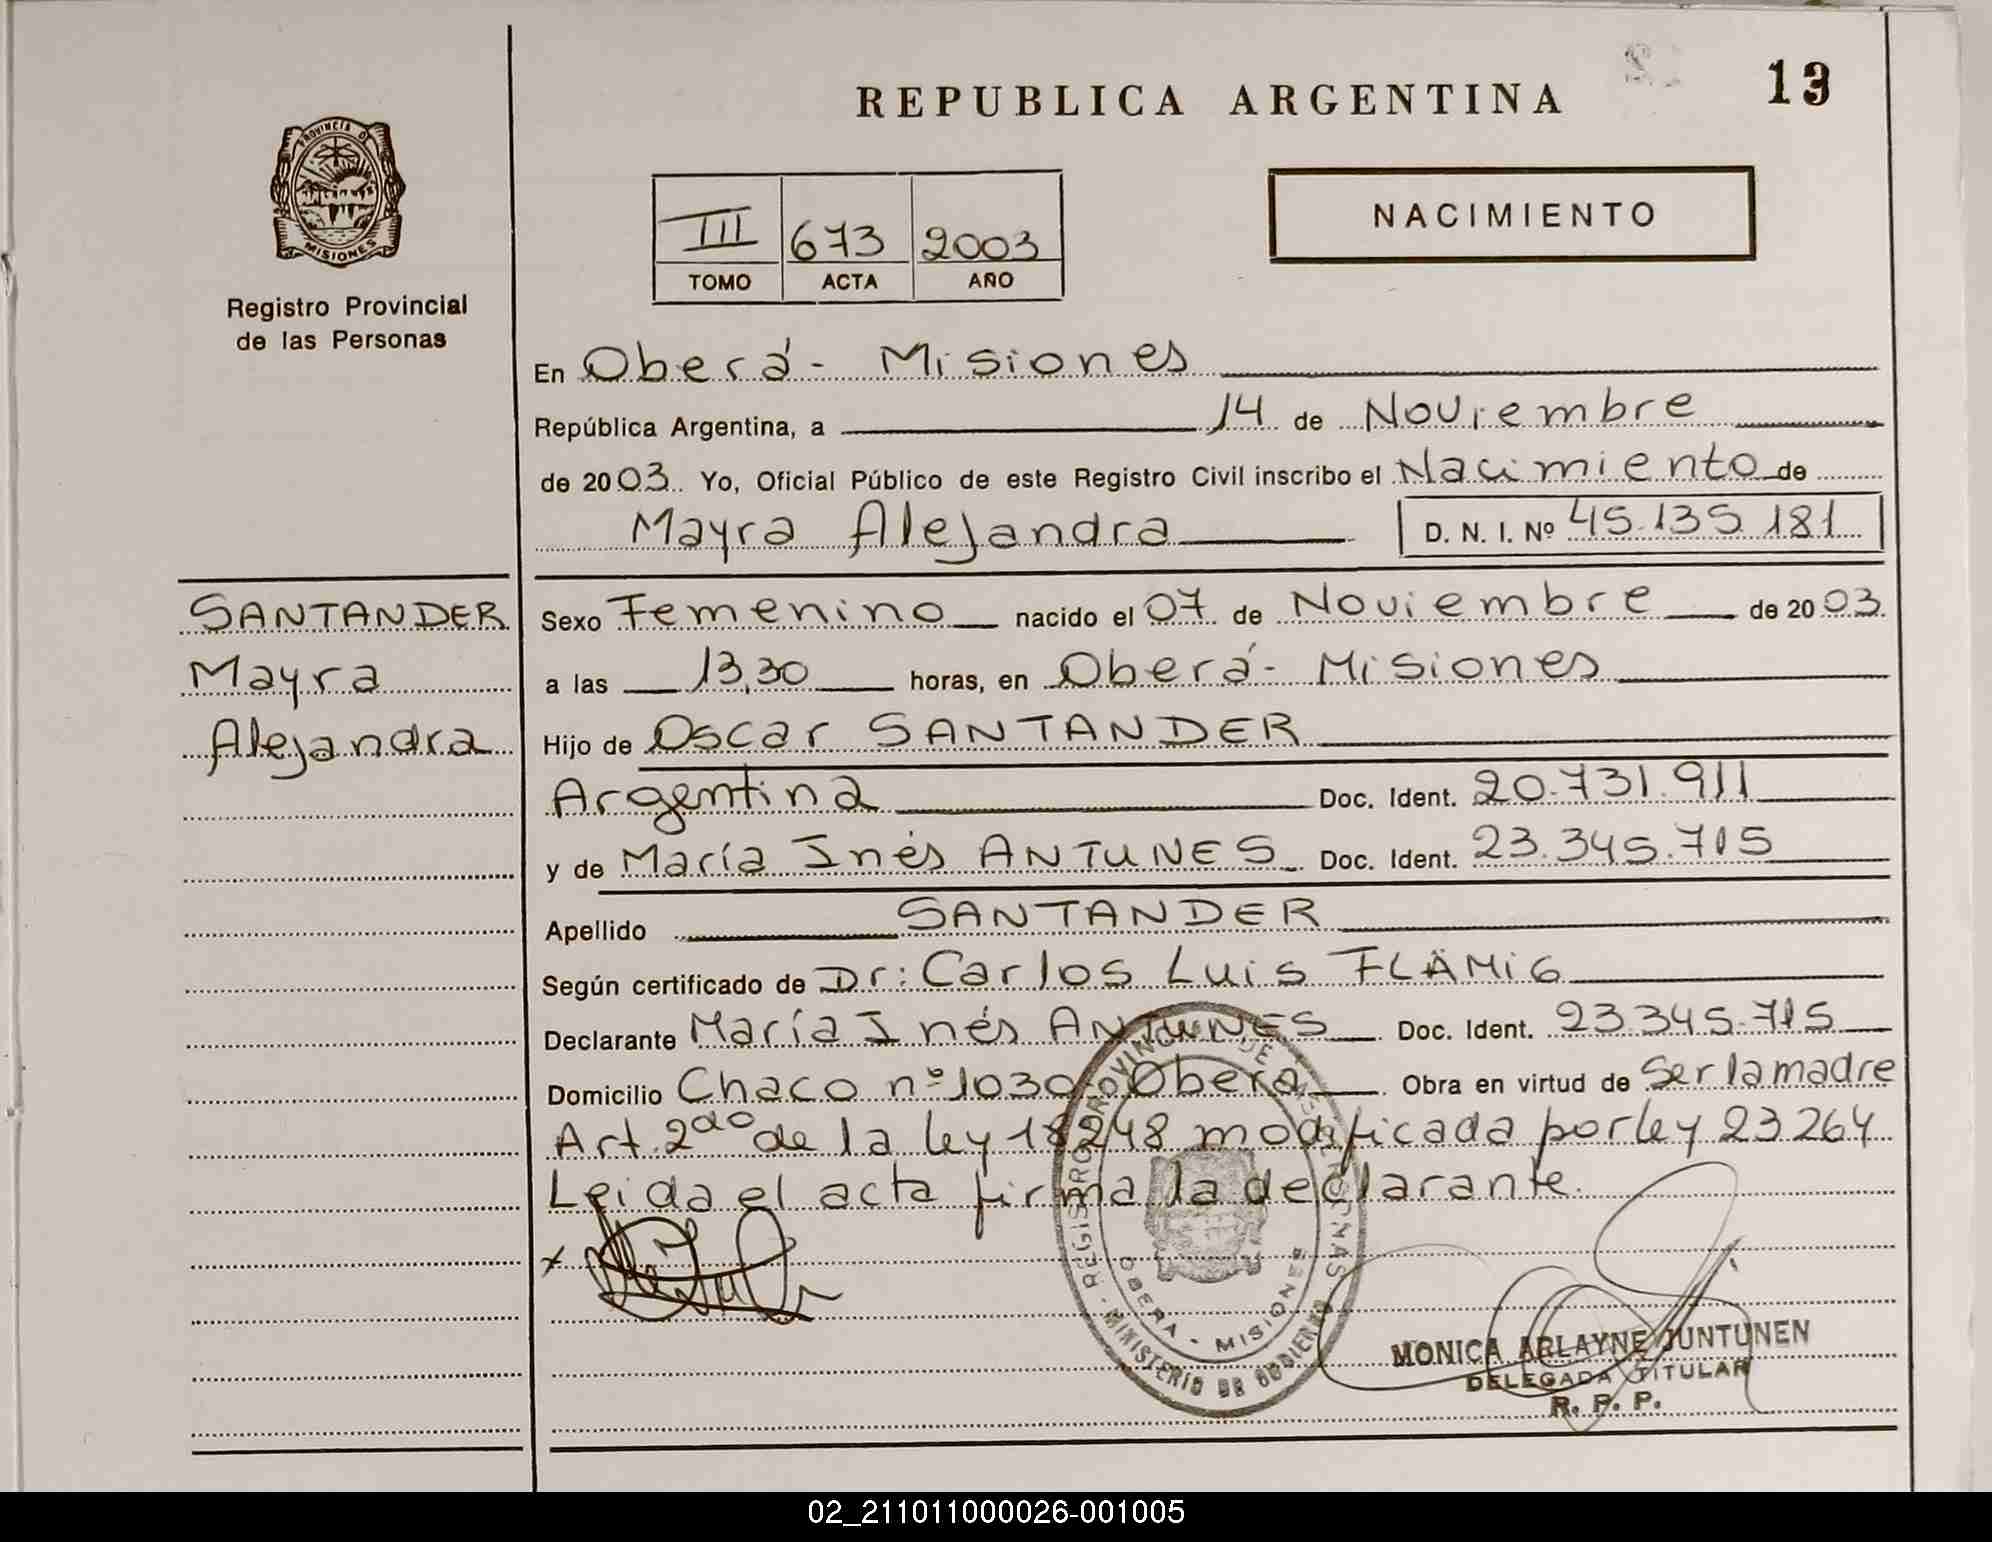 REPUBLICA ARGENTINA
13
PROVINCIA DE
MISIONES
Registro Provincial
de las Personas
III 673 2003
TOMO ACTA AÑO
NACIMIENTO
En Oberá - Misiones
República Argentina, a 14 de Noviembre
de 2003. Yo, Oficial Público de este Registro Civil inscribo el Nacimiento de
Mayra Alejandra D. N. I. Nº 45.135.181
SANTANDER
Mayra
Alejandra
Sexo Femenino nacido el 07 de Noviembre de 2003.
a las 13,30 horas, en Oberá - Misiones
Hijo de Oscar SANTANDER
Argentina Doc. Ident. 20.731.911
y de María Inés ANTUNES Doc. Ident. 23.345.715
Apellido SANTANDER
Según certificado de Dr: Carlos Luis FLÄMIG
Declarante María Inés ANTUNES Doc. Ident. 23.345.715
Domicilio Chaco nº 1030 - Oberá Obra en virtud de Ser la madre
Art. 2do de la ley 18248 modificada por ley 23264
Leida el acta firma la declarante.
REGISTRO PROVINCIAL DE LAS PERSONAS
OBERA - MISIONES
MINISTERIO DE GOBIERNO
MONICA ARLAYNE JUNTUNEN
DELEGADA TITULAR
R. P. P.
02_211011000026-001005